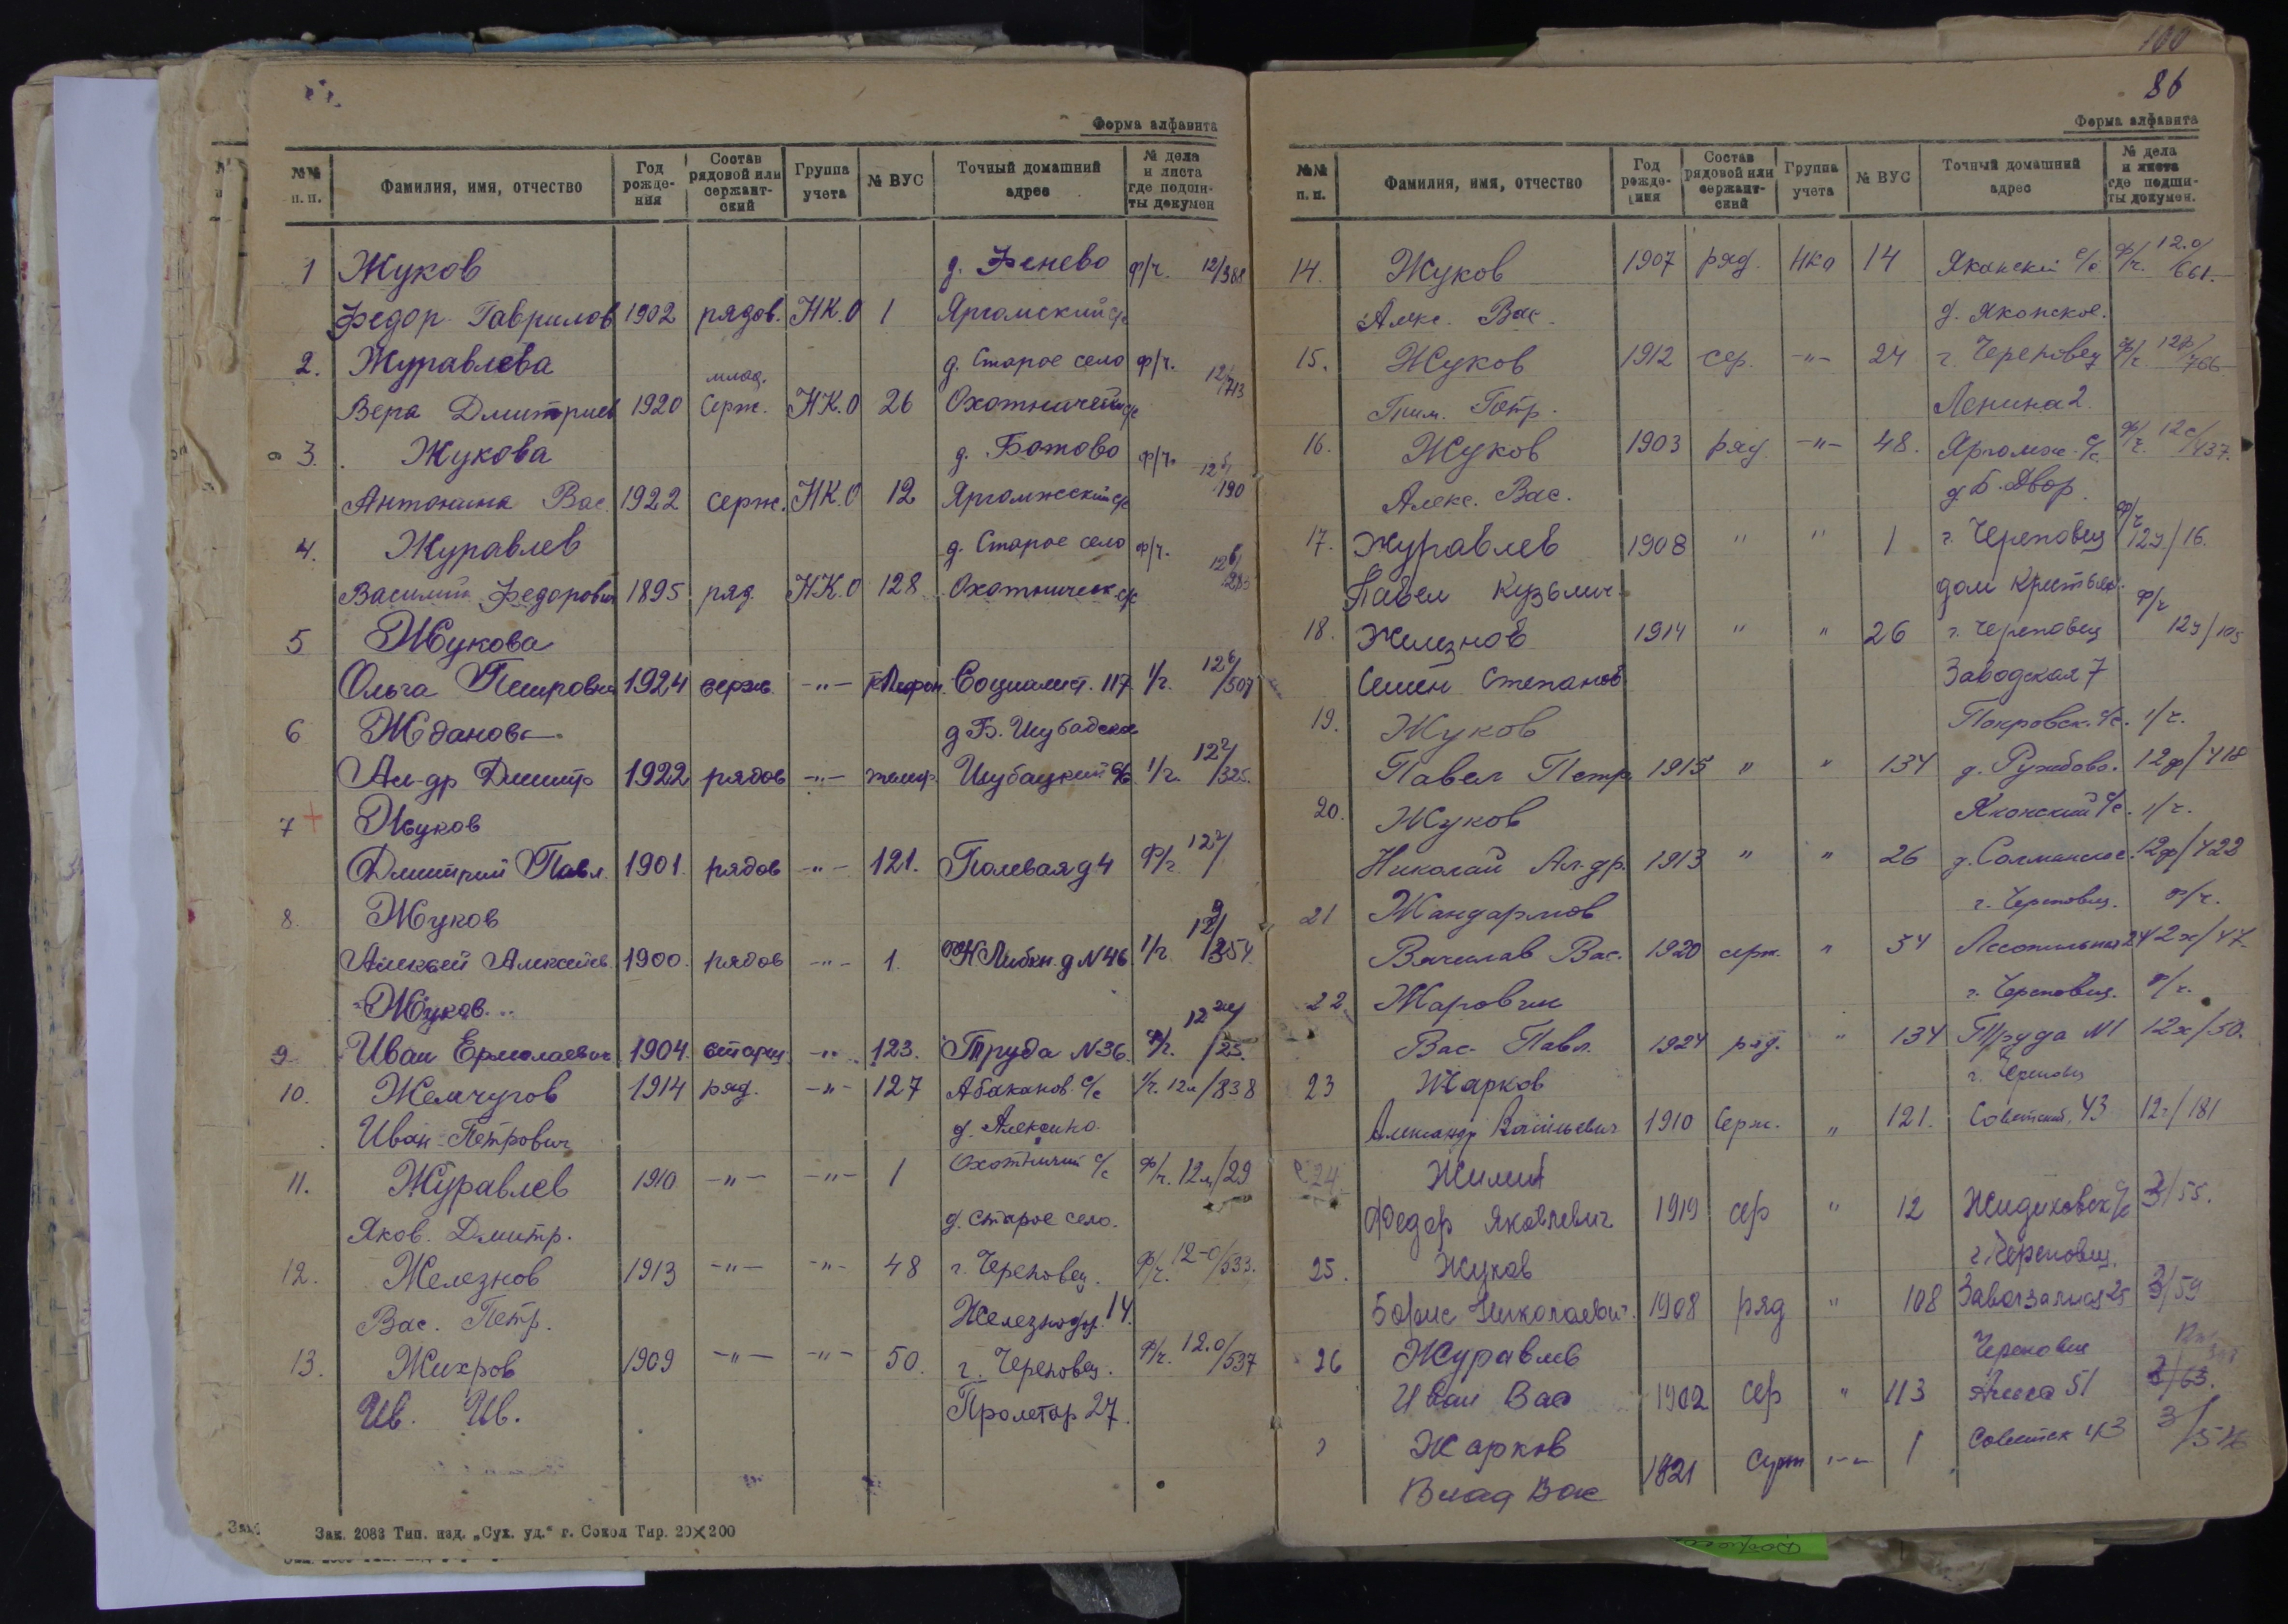 Форма алфавита
№№ п. п.
Фамилия, имя, отчество
Год рожде-ния
Состав рядовой или сержант-ский
Группа учета
№ ВУС
Точный домашний адрес
№ дела и листа где подши-ты докумен
1 Жуков д. Фенево ф/ч. 12/388
Федор Гаврилов 1902 рядов. НК.О 1 Яргомский с/с
2. Журавлева д. Старое село ф/ч. 12/713
Вера Дмитриев 1920 млад. Серж. НК.О 26
3. Жукова д. Ботово ф/ч.
Антонина Вас. 1922 серж. НК.О 12 Яргомжский с/с 190
4. Журавлев д. Старое село ф/ч.
Василий Федорович 1895 ряд. НК.О 128 Охотническ. с/с
5 Жукова
Ольга Петровна 1924 серж. -"- Социалист. 117 /507
6 Жданов
Ал-др Дмитр 1922 рядов -"- Шубацкий с/с /325.
7 Жуков
Дмитрий Павл. 1901. рядов -"- 121. Полевая д 4 ф/ч
8. Жуков
Алексей Алексеев. 1900. рядов -"- 1. К Либкн. д N 46
Жуков
9 Иван Ермолаевич 1904. -"- 123. Труда N 36. /25.
10. Жемчугов 1914 ряд. -"- 127 Абаканов с/с /838
Иван Петрович д. Алексино.
11. Журавлев 1910 -"- -"- 1 Охотничий с/с ф/ч. 12 /29
Яков. Дмитр. д. Старое село.
12. Железнов 1913 -"- -"- 48 г. Череповец. ф/ч. 12-0/533.
Вас. Петр. Железнодор. 14.
13. Жихров 1909 -"- -"- 50. г. Череповец. ф/ч. 12.0/537
Ив. Ив. Пролетар 27.
Зак. 2083 Тип. изд. „Сух. уд.“ г. Сокол Тир. 20×200
100
86
Форма алфавита
№№ п. п.
Фамилия, имя, отчество
Год рожде-ния
Состав рядовой или сержант-ский
Группа учета
№ ВУС
Точный домашний адрес
№ дела и листа где подши-ты докумен.
14. Жуков 1907 ряд. НКО 14 Яконский с/с ф/ч. 12.0/661.
Алекс. Вас. д. Яконское.
15. Жуков 1912 сер. -"- 24 г. Череповец ф/ч.
Петр. Ленина 2.
16. Жуков 1903 ряд. -"- 48. Яргомж. с/с. ф/ч. 12 /437.
Алекс. Вас. д. Б. Двор
17. Журавлев 1908 " " 1 г. Череповец ф/ч 12 /16.
Павел Кузьмич. дом
18. Железнов 1914 " " 26 г. Череповец ф/ч
Семен Степанов Заводская 7
19. Жуков Покровск. с/с.
Павел Петр. 1915 " " 134 12ф/418
20. Жуков Яконский с/с.
Николай Ал-др. 1913 " " 26 12ф/422
21 Жандармов г. Череповец.
Вячеслав Вас. 1920 серж. " 34 12ж/47
22. Жаровчик г. Череповец.
Вас. Павл. 1924 ряд. " 134 Труда N1 12ж/50.
23 Жарков г. Череповец
Александр Васильевич 1910 Серж. " 121. Советский, 43 /181
24. Жилин
Федор Яковлевич 1919 сер " 12 3/55.
25. Жуков г. Череповец.
Борис Николаевич. 1908 ряд " 108 3/59
26 Журавлев Череповец
Иван Вас 1902 сер " 113 3/63.
Жарков Советск 43
Влад Вас 1921 -"- 1